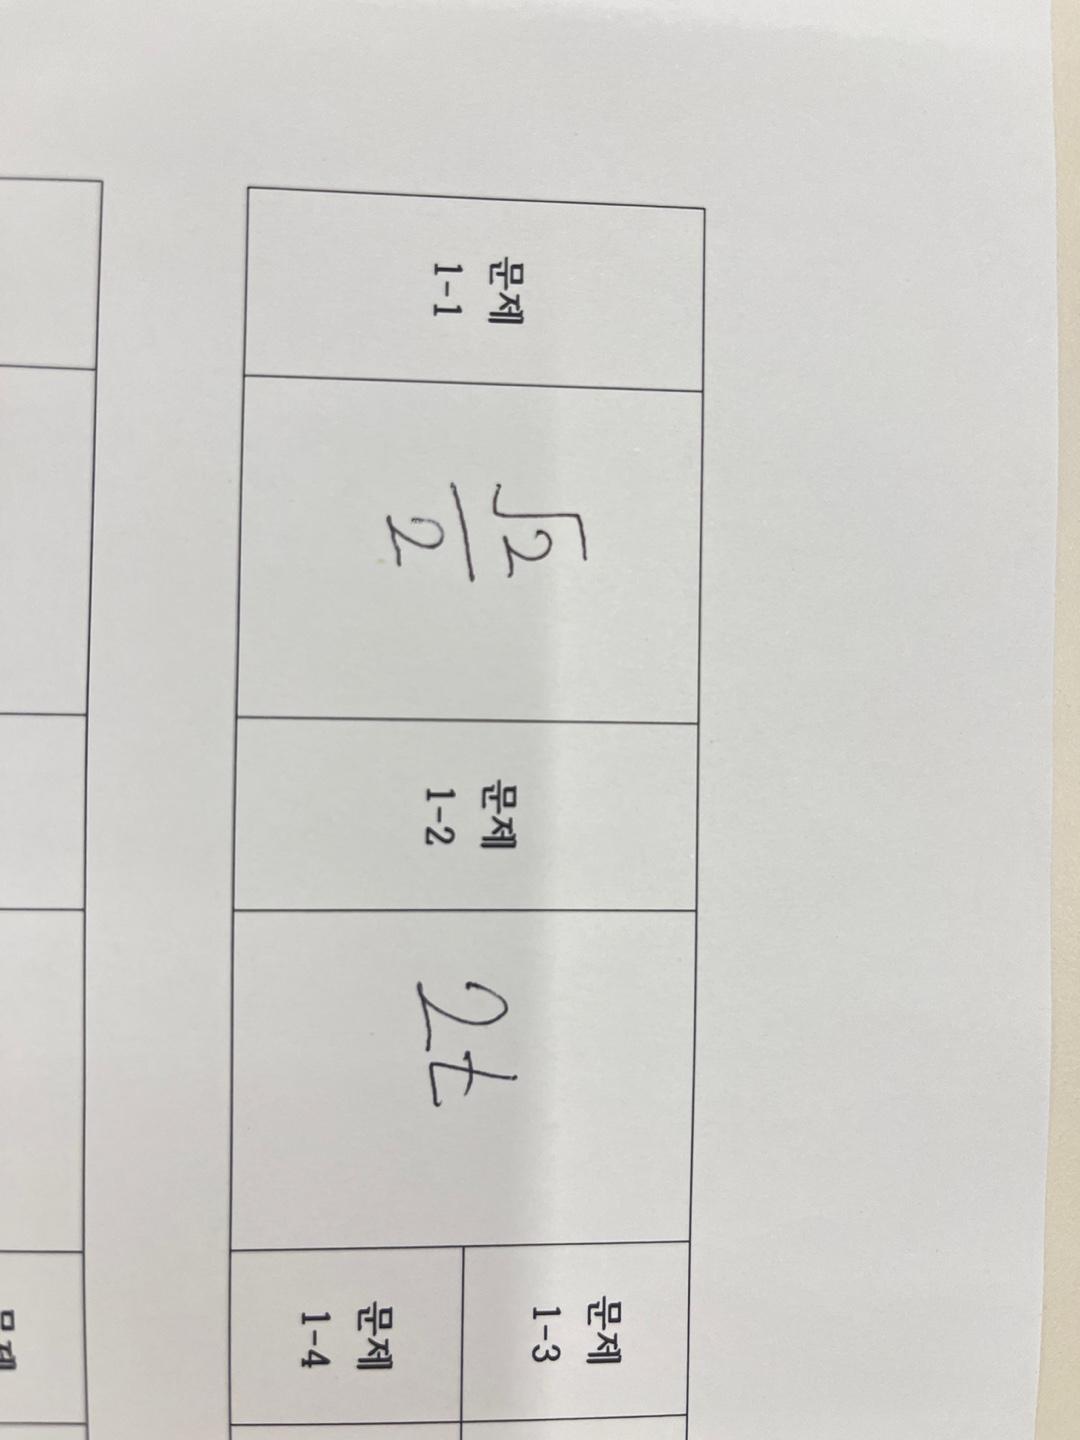 문제
1-1
√2/2
문제
1-2
2t
문제
1-3
문제
1-4